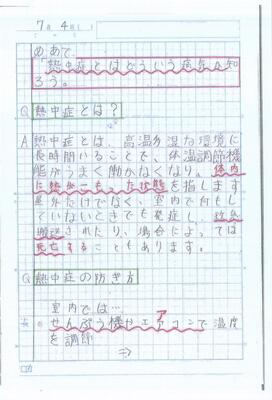 7月 4日( )
めあて
「熱中症とはどういう病気か知
ろう。
Q 熱中症とは?
A 熱中症とは、高温多湿な環境に
長時間いることで、体温調節機
能がうまく働かなくなり、体内
に熱がこもった状態を指します
屋外だけでなく、室内で何もし
ていないときでも発症し、救急
搬送されたり、場合によっては
死亡することもあります。
Q 熱中症の防ぎ方
室内では…
○せんぷう機やエアコンで温度
を調節
⇒